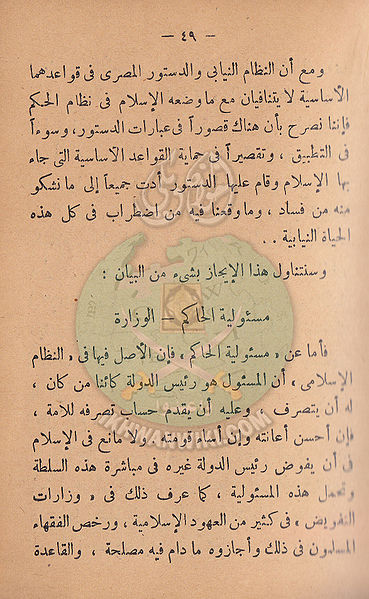 — ٤٩ —
ومع أن النظام النيابى والدستور المصرى فى قواعدهما
الأساسية لا يتنافيان مع ما وضعه الإسلام فى نظام الحكم
فإننا نصرح بأن هناك قصوراً فى عبارات الدستور، وسوءاً
فى التطبيق ، وتقصيراً فى حماية القواعد الأساسية التى جاء
بها الإسلام وقام عليها الدستور أدت جميعاً إلى ما نشكو
منه من فساد ، وما وقعنا فيه من اضطراب فى كل هذه
الحياة النيابية . .
وسنتناول هذا الإيجاز بشىء من البيان :
مسئولية الحاكم — الوزارة
فأما عن « مسئولية الحاكم » فإن الأصل فيها فى « النظام
الإسلامى ، أن المسئول هو رئيس الدولة كائنا من كان ،
له أن يتصرف ، وعليه أن يقدم حساب تصرفه للامة ،
فإن أحسن أعانته وإن أساء قومته ، ولا مانع فى الإسلام
فى أن يفوض رئيس الدولة غيره فى مباشرة هذه السلطة
وتحمل هذه المسئولية ، كما عرف ذلك فى « وزارات
التفويض » فى كثير من العهود الإسلامية ، ورخص الفقهاء
المسلمون فى ذلك وأجازوه ما دام فيه مصلحة ، والقاعدة
IKHWANWIKI.COM